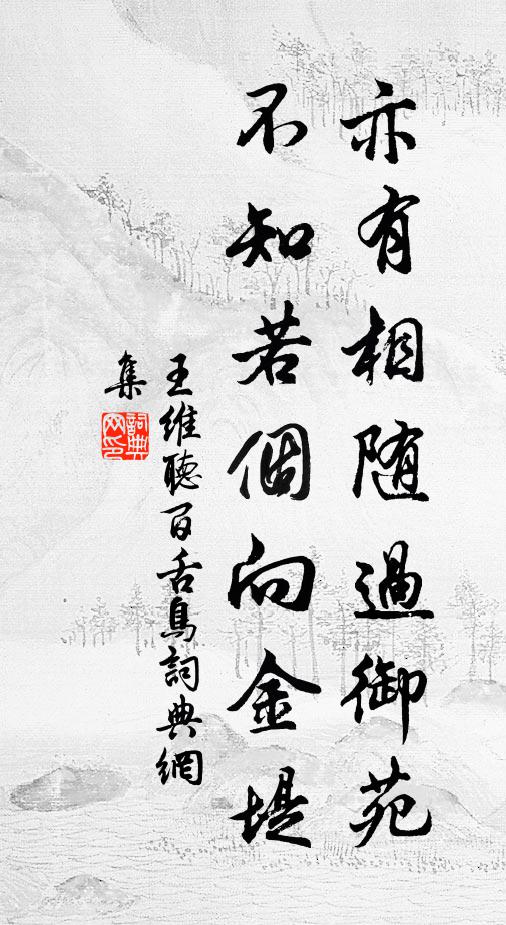 亦有相随過御苑
不知若個向金堤
王維聴百舌鳥詞典網
集
詞典
网印